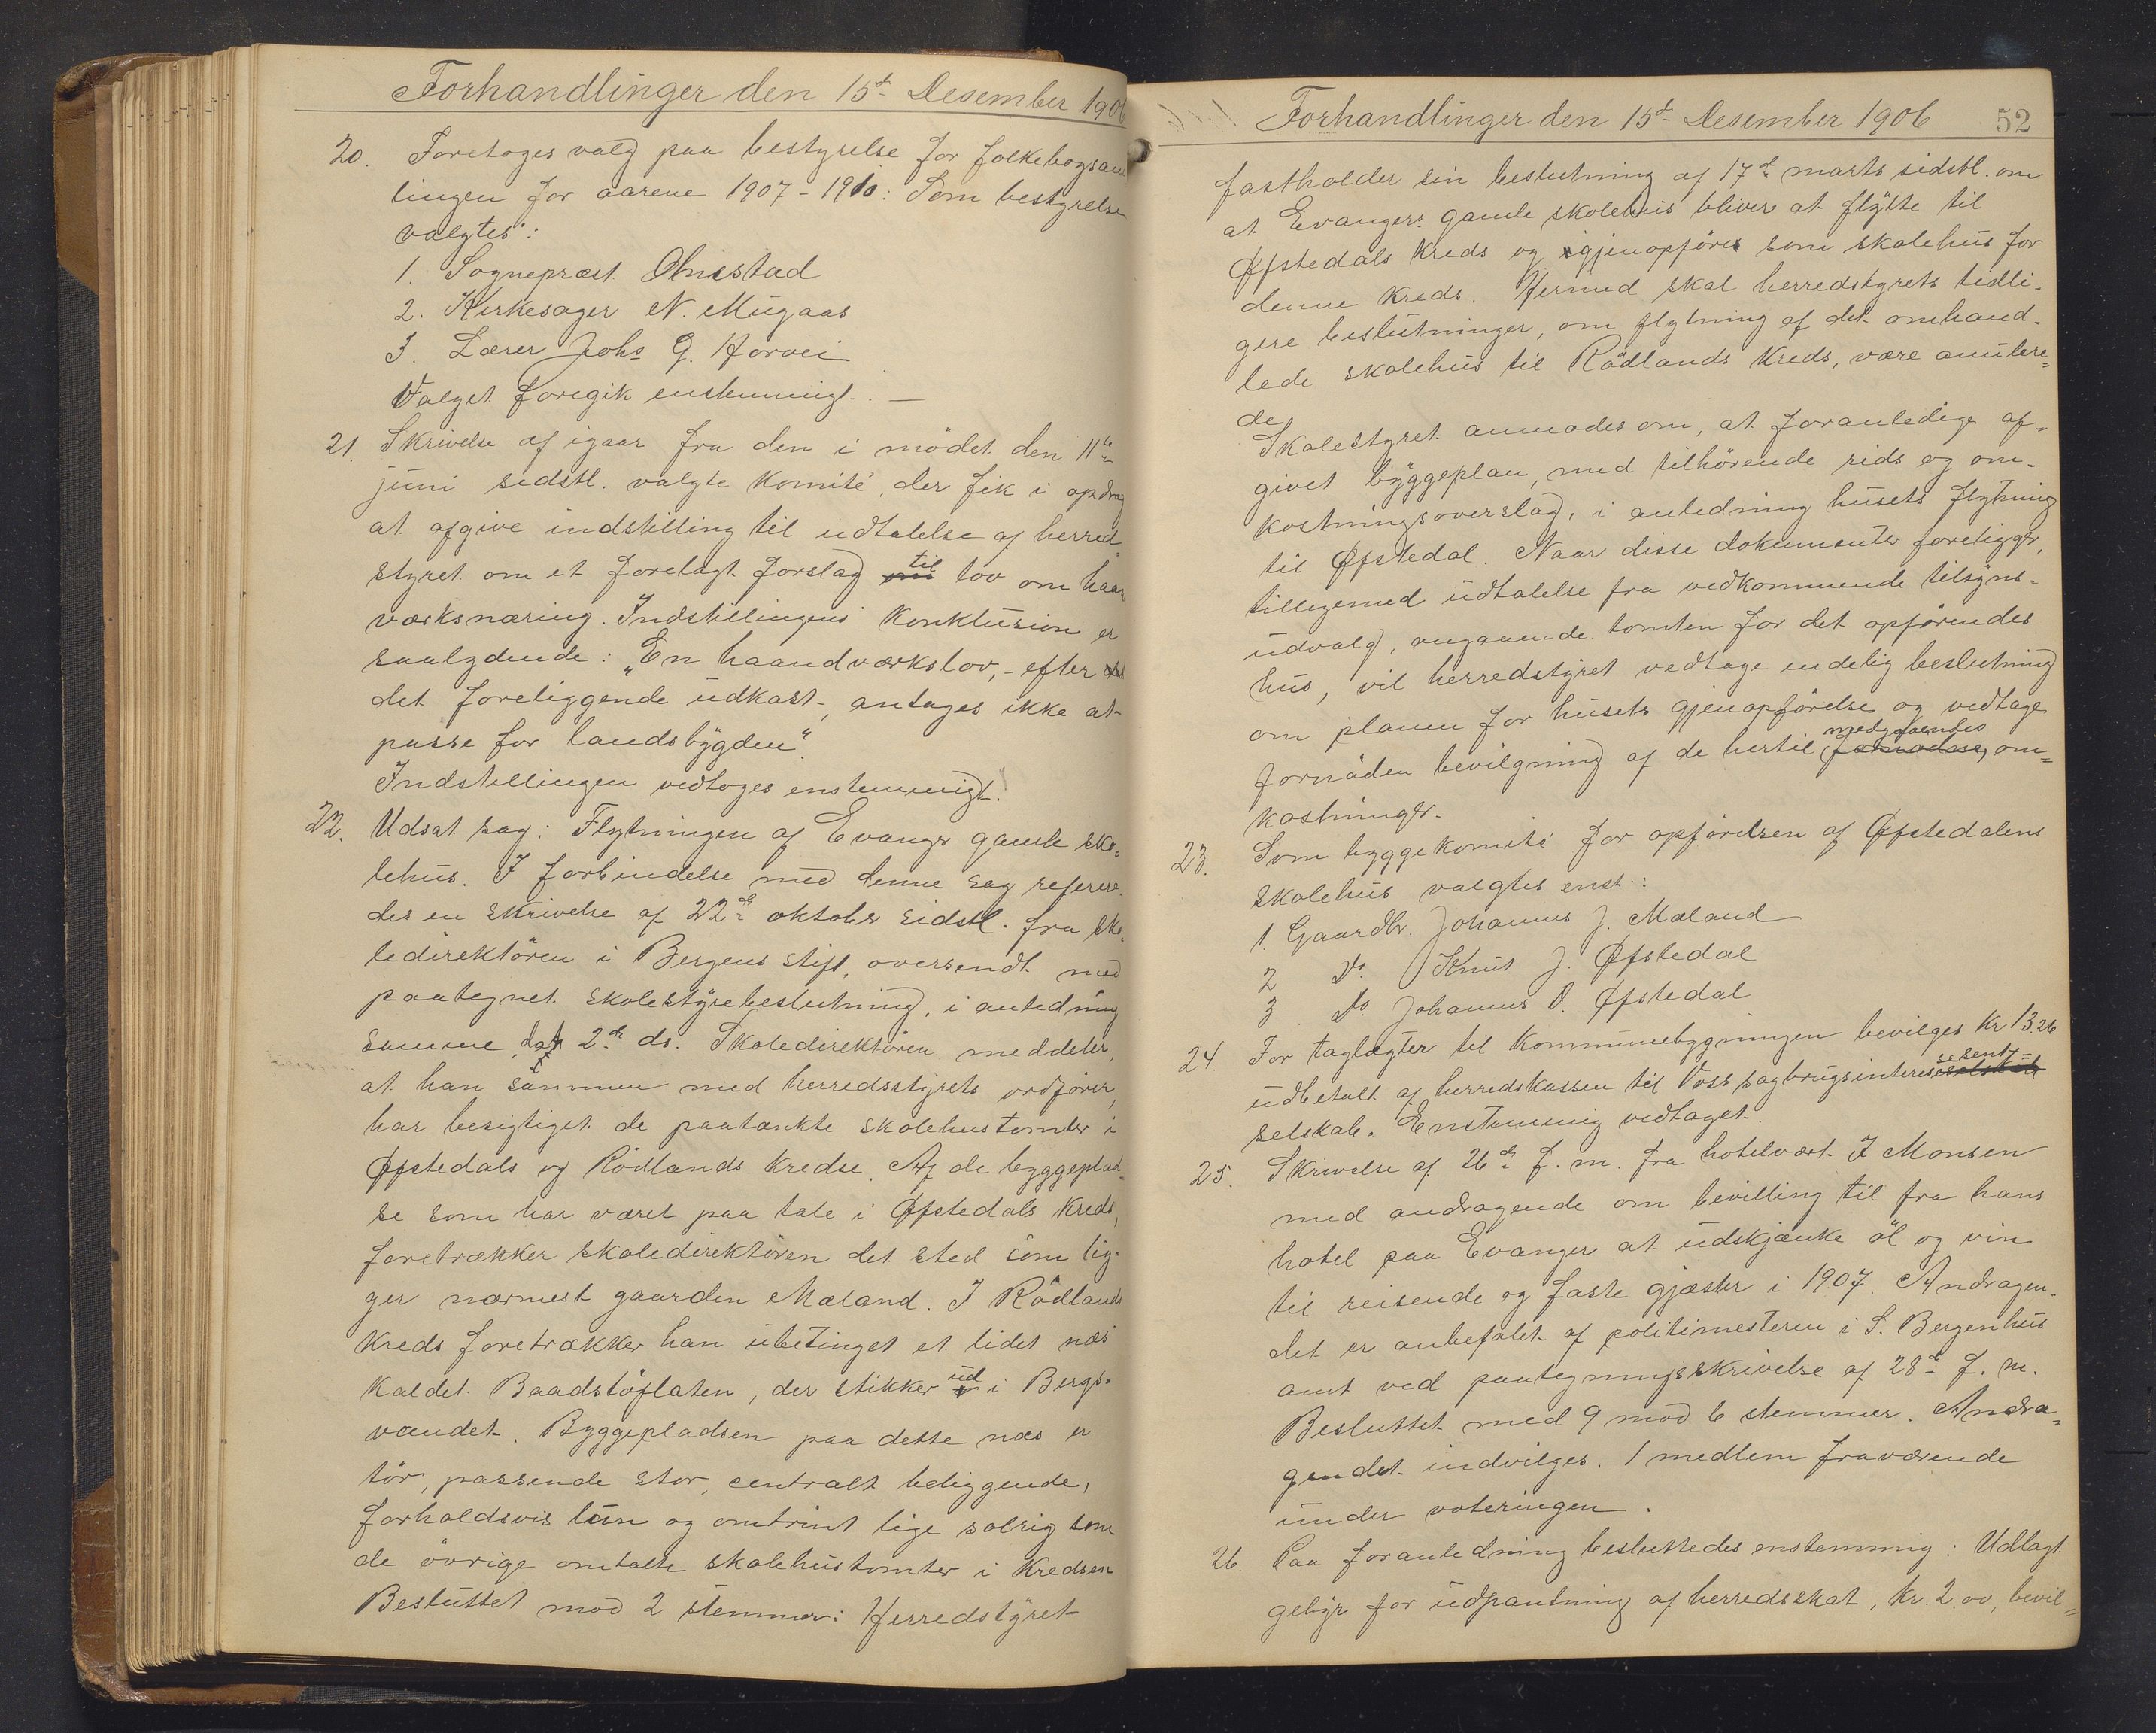 Forhandlinger den 15de Desember 1906
20. Foretoges valg paa bestyrelse for folkebogsam
lingen for aarene 1907-1910: Som bestyrelse
valgtes:
1. Sogneprest Olmstad
2. Kirkesager N. Mügaas
3. Lærer Johs G. Horvei
Valget foregik enstemmigt. —
21. Skrivelse af igaar fra den i mödet den 11te
juni sidstl. valgte Komité, der fik i opdrag
at afgive indstilling til udtalelse af herred
styret om et forelagt forslag til lov om haand
værksnæring. Indstillingens Konklusion er
saalydende: "En haandværkslov, - efter
det foreliggende udkast -, antages ikke at
passe for landsbygden".
Indstillingen vedtoges enstemmigt.
22. Udsat sag: Flytningen af Evanger gamle sko-
lehus. I forbindelse med denne sag refere-
des en skrivelse af 22de oktober sidstl. fra sko-
ledirektören i Bergens stift, oversendt med
paategnet skolestyrebeslutning, i anledning
samme, dat 2den ds. Skoledirektören meddeler,
at han sammen med herredsstyrets ordförer,
har besigtiget de paatænkte skolehustomter i
Øfstedals og Rödlands Kredse. Af de byggeplad-
se som har været paa tale i Øfstedals Kreds,
foretrækker skoledirektören det sted som lig-
ger nærmest gaarden Mæland. I Rödlands
Kreds foretrækker han ubetinget et lidet næs
Kaldet Baadstöflaten, der stikker ud i Bergs-
vandet. Byggepladsen paa dette næs er
tör, passende stor, centralt beliggende,
forholdsvis lun og omtrint lige solrig som
de övrige omtalte skolehustomter i Kredsen
Besluttet mod 2 stemmer: Herredstyret
Forhandlinger den 15de Desember 1906 52
fastholder sin beslutning af 17de marts sidstl. om
at Evangers gamle skolehus bliver at flytte til
Øfstedals Kreds og igjenopföres som skolehus for
denne Kreds. Hermed skal herredstyrets tidli-
gere beslutninger, om flytning af det omhand-
lede skolehus til Rödlands Kreds, være anulere-
de
Skolestyret anmodes om, at foranledige af-
givet byggeplan, med tilhörende rids og om-
kostningsoverslag, i anledning husets flytning
til Øfstedal. Naar disse dokumenter foreligger,
tilligemed udtalelse fra vedkommende tilsyns-
udvalg, angaaende tomten for det opförendes
hus, vil herredstyret vedtage endelig beslutning
om planen for husets gjenopförelse og vedtage
fornöden bevilgning af de hertil medgaaendes om-
kostninger.
23. Som byggekomité for opförelsen af Øfstedalens
skolehus valgtes enst.:
1. Gaardbr. Johannes J. Mæland
2 Do. Knut J. Øfstedal
3 Do Johannes O. Øfstedal
24. For taglægter til Kommunebygningen bevilges Kr 13.26
udbetalt af herredskassen til Voss sagbrugsinteressent=
selskab. Enstemmig vedtaget.
25. Skrivelse af 26de f. m. fra hotelvært I Monsen
med andragende om bevilling til fra hans
hotel paa Evanger at udskjænke öl og vin
til reisende og faste gjæster i 1907. Andragen-
det er anbefalet af politimesteren i S. Bergenhus
amt ved paategningsskrivelse af 28de f. m.
Besluttet med 9 mod 6 stemmer. Andra-
gendet indvilges. 1 medlem fraværende
under voteringen.
26. Paa foranledning besluttedes enstemmig: Udlagt
gebyr for udpantning af herredsskat, Kr. 2,00, bevil=